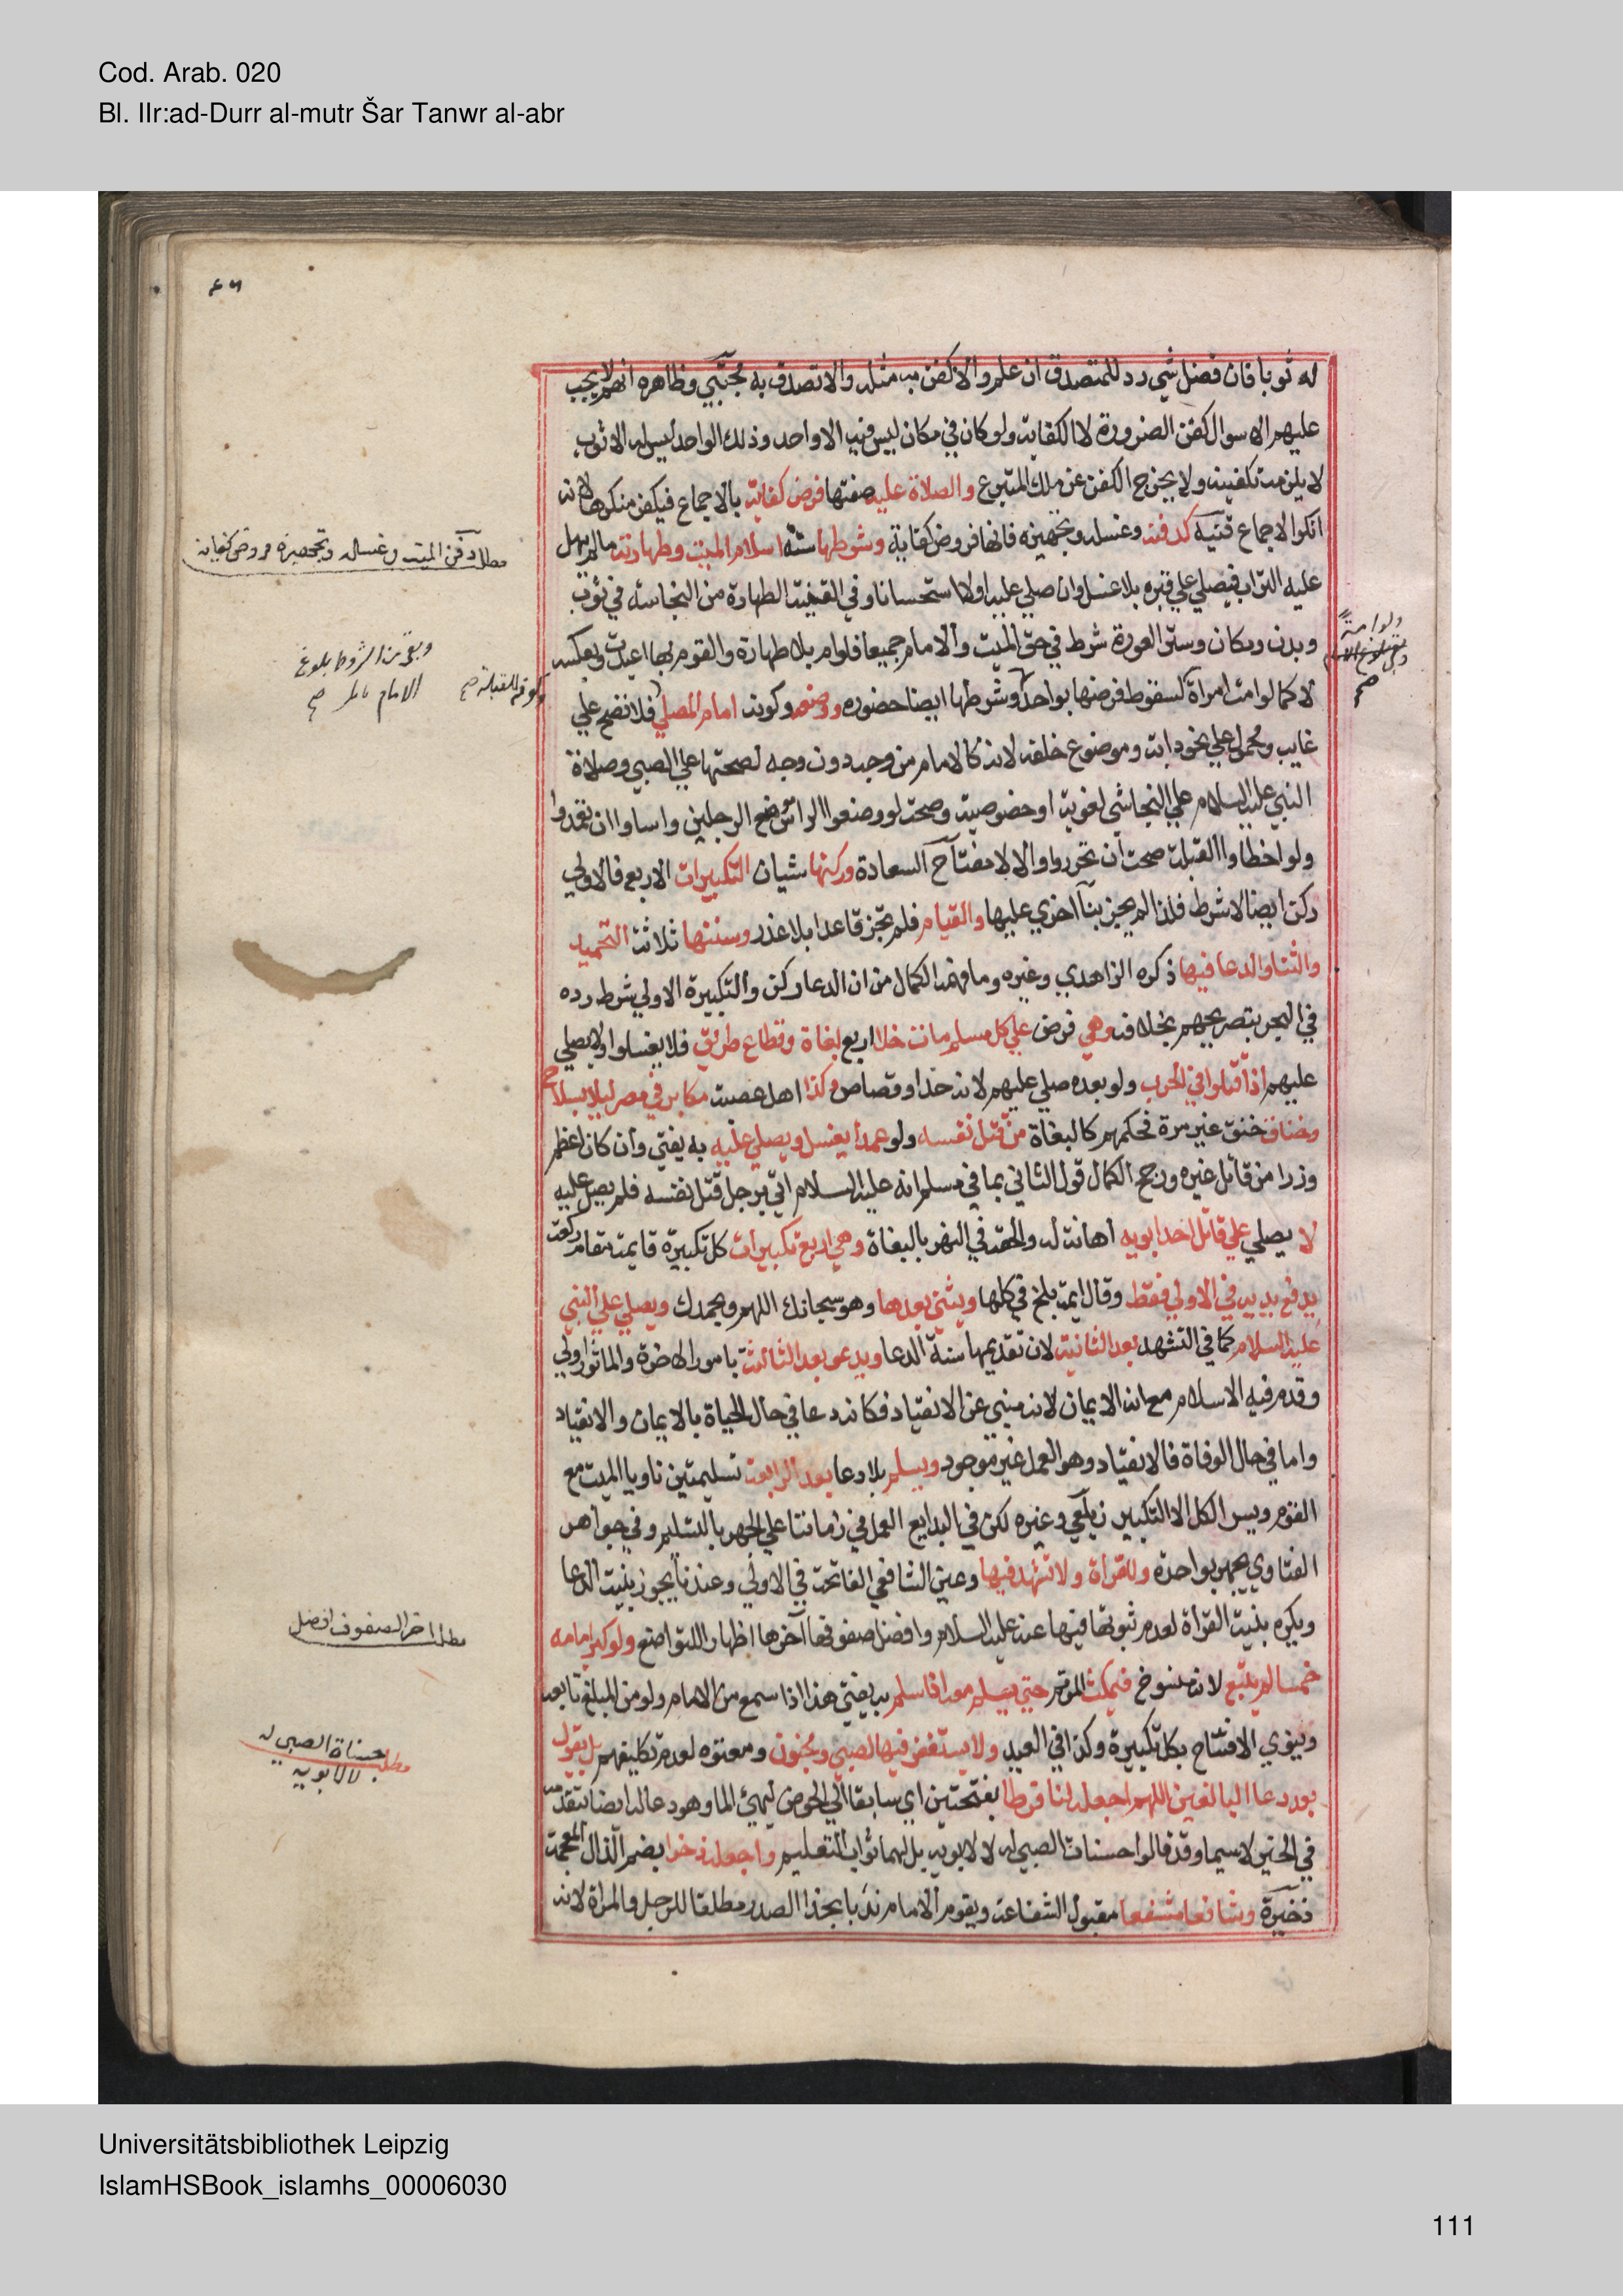 Cod. Arab. 020
Bl. IIr:ad-Durr al-mutr Šar Tanwr al-abr
له ثوبا فان فضل شي رد للمتصدق ان علم والا كفن به مثله والا تصدق به مجتبي وظاهره انهم لا يجب
عليهم الا سوال كفن الضرورة لا الكفاية ولو كان في مكان ليس فيه الا واحد وذلك الواحد ليس له الا ثوب
لا يلزمه تكفينه ولا يخرج الكفن عن ملك المتبرع والصلاة عليه صفتها فرض كفاية بالاجماع فيكفر منكرها لانه
انكر الاجماع قنيه كدفنه وغسله وتجهيزه فانها فروض كفاية وشرطها ستة اسلام الميت وطهارته مالم يهل
عليه التراب فيصلي علي قبره بلا غسل وان صلي عليه اولا استحسانا وفي القنية الطهارة من النجاسة في ثوب
وبدن ومكان وستر العورة شرط في حق الميت والامام جميعا فلو ام بلا طهارة والقوم بها اعيدت وبعكسه
لا كما لو امت امراة لسقوط فرضها بواحد وشرطها ايضا حضوره ووضعه وكونه امام المصلي فلا تصح علي
غايب ومحمول علي نحو دابة وموضوع خلفه لانه كالامام من وجه دون وجه لصحتها علي الصبي وصلاة
النبي عليه السلام علي النجاشي لغوية او خصوصية وصحت لو وضعوا الراس موضع الرجلين واساوا ان تعمدوا
ولو اخطاوا القبلة صحت ان تحروا والا لا مفتاح السعادة وركنها شيان التكبيرات الاربع فالاولي
ركن ايضا لا شرط فلذا لم يجز بنا اخري عليها والقيام فلم تجز قاعدا بلا عذر وسننها ثلاثة التحميد
والثنا والدعا فيها ذكره الزاهدي وغيره وما فهمه الكمال من ان الدعا ركن والتكبيرة الاولي شرط رده
في البحر بتصريحهم بخلافه وهي فرض علي كل مسلم مات خلا اربع بغاة وقطاع طريق فلا يغسلوا ولا يصلي
عليهم اذا قتلوا في الحرب ولو بعده صلي عليهم لانه حدا وقصاص وكذا اهل عصبة مكابر في مصر ليلا بسلاح
وخناق خنق غير مرة فحكمهم كالبغاة من قتل نفسه ولو عمدا يغسل ويصلي عليه به يفتي وان كان اعظم
وزرا من قاتل غيره ورجح الكمال قول الثاني بما في مسلم انه عليه السلام اتي برجل قتل نفسه فلم يصل عليه
لا يصلي علي قاتل احد ابويه اهانة له والحقه في النهر بالبغاة وهي اربع تكبيرات كل تكبيرة قايمة مقام ركعة
يرفع يديه في الاولي فقط وقال ايمة بلخ في كلها ويثني بعدها وهو سبحانك اللهم وبحمدك ويصلي علي النبي
عليه السلام كما في التشهد بعد الثانية لان تقديمها سنة الدعا ويدعو بعد الثالثة بامور الاخرة والماثور اولي
وقدم فيه الاسلام مع انه الايمان لانه منبي عن الانقياد فكانه دعا في حال الحياة بالايمان والانقياد
واما في حال الوفاة فالانقياد وهو العمل غير موجود ويسلم بلا دعا بعد الرابعة تسليمتين ناويا الميت مع
القوم ويسر الكل الا التكبير زيلعي وغيره لكن في البدايع العمل في زماننا علي الجهر بالتسليم وفي جواهر
الفتاوي يجهر بواحدة ولا قراة ولا تشهد فيها وعين الشافعي الفاتحة في الاولي وعندنا يجوز بنية الدعا
ويكره بنية القراة لعدم ثبوتها فيها عنه عليه السلام وافضل صفوفها اخرها اظهارا للتواضع ولو كبر امامه
خمسا لم يتبع لانه منسوخ فيمكث الموتم حتي يسلم معه اذا سلم به يفتي هذا اذا سمع من الامام ولو من المبلغ تابعه
وينوي الافتتاح بكل تكبيرة وكذا في العيد ولا يستغفر فيها لصبي ومجنون ومعتوه لعدم تكليفهم بل يقول
بعد دعا البالغين اللهم اجعله لنا فرطا بفتحتين اي سابقا الي الحوض ليهيئ الما وهو دعا له ايضا بتقدمه
في الخير لا سيما وقد قالوا حسنات الصبي له لا لابويه بل لهما ثواب التعليم واجعله ذخرا بضم الذال المعجمة
ذخيرة وشافعا مشفعا مقبول الشفاعة ويقوم الامام ندبا بحذا الصدر مطلقا للرجل والمراة لانه
مطلب دفن الميت وغسله وتجهيزه فروض كفاية
وبقي من الشروط بلوغ
الامام تامل صح
وكونه للقبلة صح
ولو امة
صح
مطلب اخر الصفوف افضل
مطلب حسناة الصبي له
لا لابويه
Universitätsbibliothek Leipzig
IslamHSBook_islamhs_00006030
111